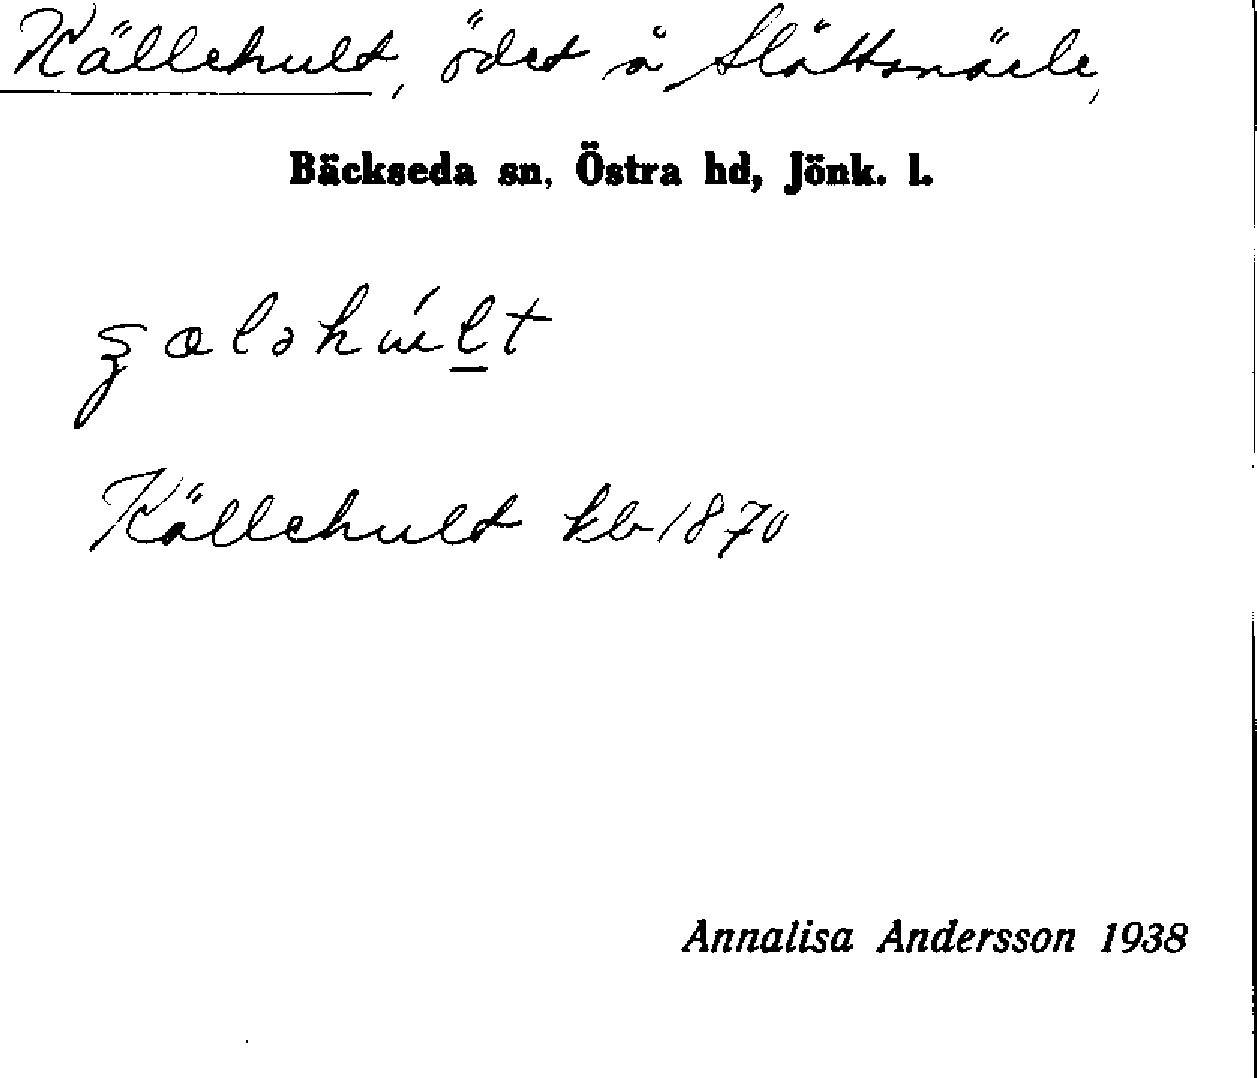 Källehult, ödet å Slättsmåla,
Bäckseda sn, Östra hd, Jönk. l.
Källehult kb 1870
Annalisa Andersson 1938